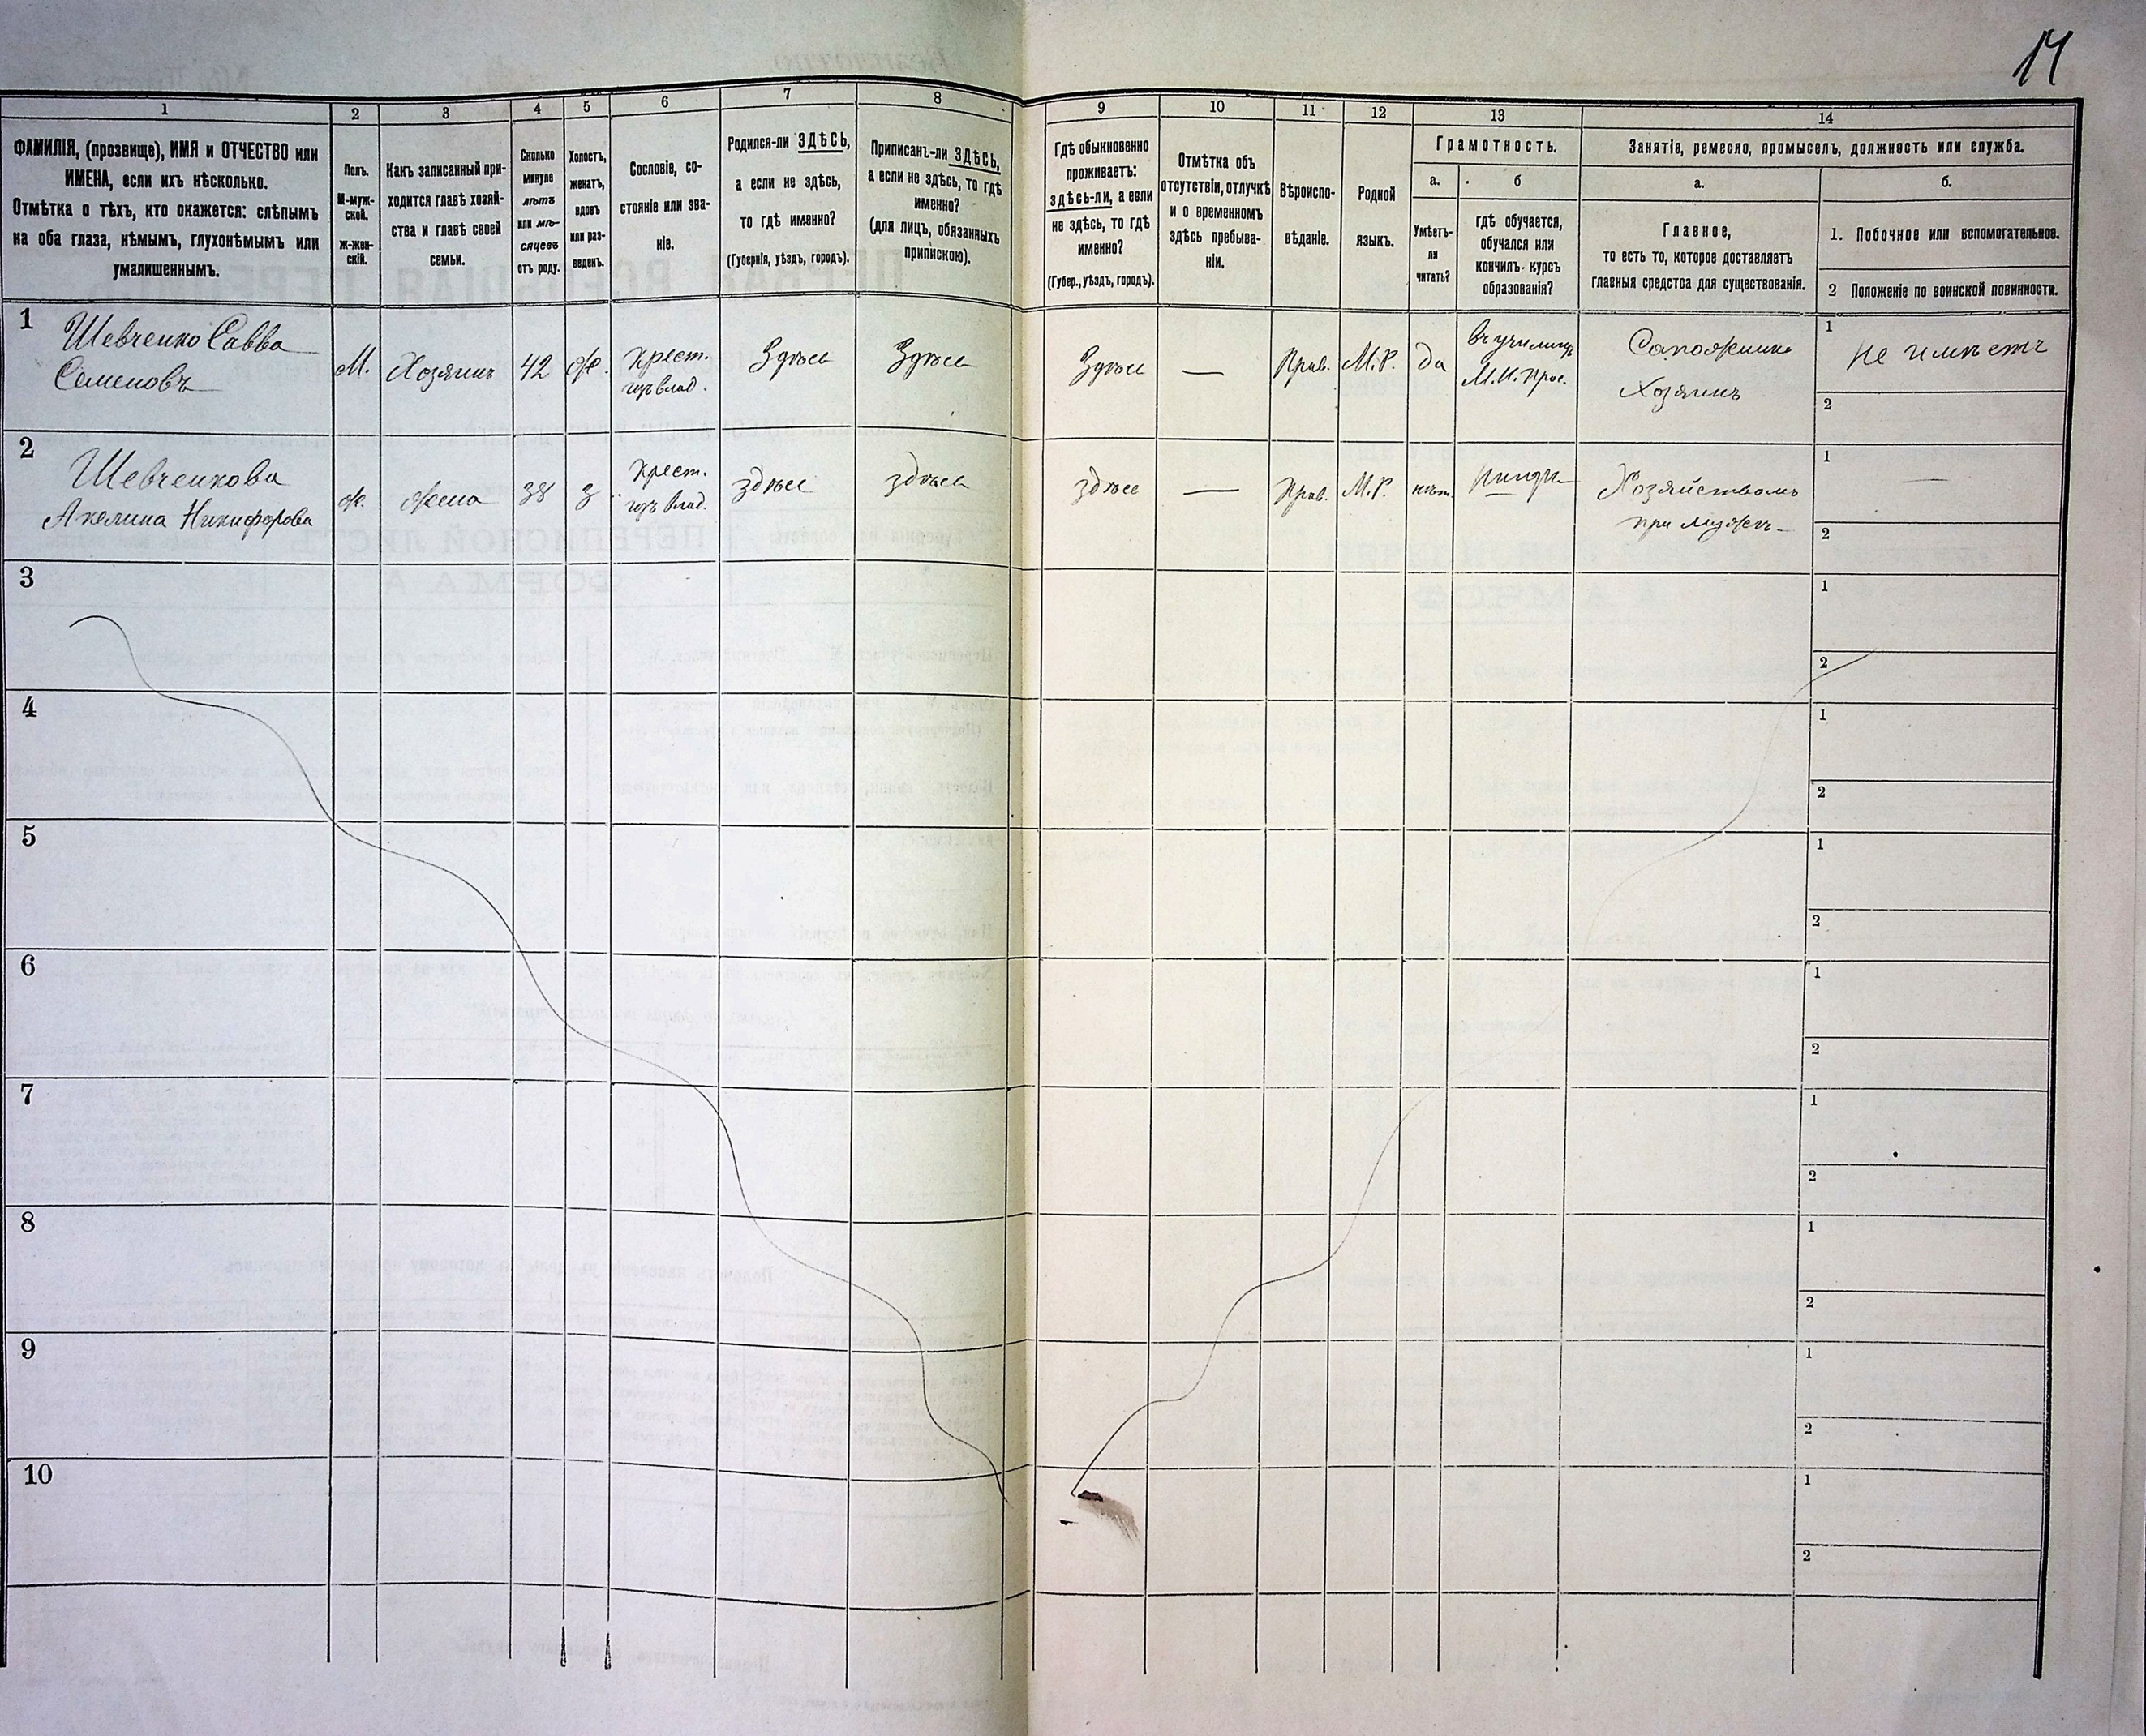 17
1
2
3
4
5
6
7
8
9
10
11
12
13
14
ФАМИЛІЯ, (прозвище), ИМЯ и ОТЧЕСТВО или
ИМЕНА, если ихъ нѣсколько.
Отмѣтка о тѣхъ, кто окажется: слѣпымъ
на оба глаза, нѣмымъ, глухонѣмымъ или
умалишеннымъ.
Полъ.
М-муж-
ской.
Ж-жен-
скій.
Какъ записанный при-
ходится главѣ хозяй-
ства и главѣ своей
семьи.
Сколько
минуло
лѣтъ
или мѣ-
сяцевъ
отъ роду.
Холостъ,
женатъ,
вдовъ
или раз-
веденъ.
Сословіе, со-
стояніе или зва-
ніе.
Родился-ли ЗДѢСЬ,
а если не здѣсь,
то гдѣ именно?
(Губернія, уѣздъ, городъ).
Приписанъ-ли ЗДѢСЬ,
а если не здѣсь, то гдѣ
именно?
(для лицъ, обязанныхъ
припискою).
Гдѣ обыкновенно
проживаетъ:
здѣсь-ли, а если
не здѣсь, то гдѣ
именно?
(Губер., уѣздъ, городъ).
Отмѣтка объ
отсутствіи, отлучкѣ
и о временномъ
здѣсь пребыва-
ніи.
Вѣроиспо-
вѣданіе.
Родной
языкъ.
Грамотность.
а.
Умѣетъ-
ли
читать?
б
гдѣ обучается,
обучался или
кончилъ курсъ
образованія?
Занятіе, ремесло, промыселъ, должность или служба.
а.
Главное,
то есть то, которое доставляетъ
главныя средства для существованія.
б.
1. Побочное или вспомогательное.
2 Положеніе по воинской повинности.
1
Шевченко Савва
Семеновъ
М.
Хозяинъ
42
ж.
Крест.
изъ влад.
Здѣсь
Здѣсь
Здѣсь
—
Прав.
М.Р.
да
Сапожник
Хозяинъ
1
не имѣетъ
2
2
Шевченкова
Акелина Никифорова
ж.
жена
38
з
Крест.
изъ влад.
здѣсь
здѣсь
здѣсь
—
Прав.
М.Р.
нѣт
нигдѣ
Хозяйствомъ
при мужѣ
1
—
2
3
1
2
4
1
2
5
1
2
6
1
2
7
1
2
8
1
2
9
1
2
10
1
2